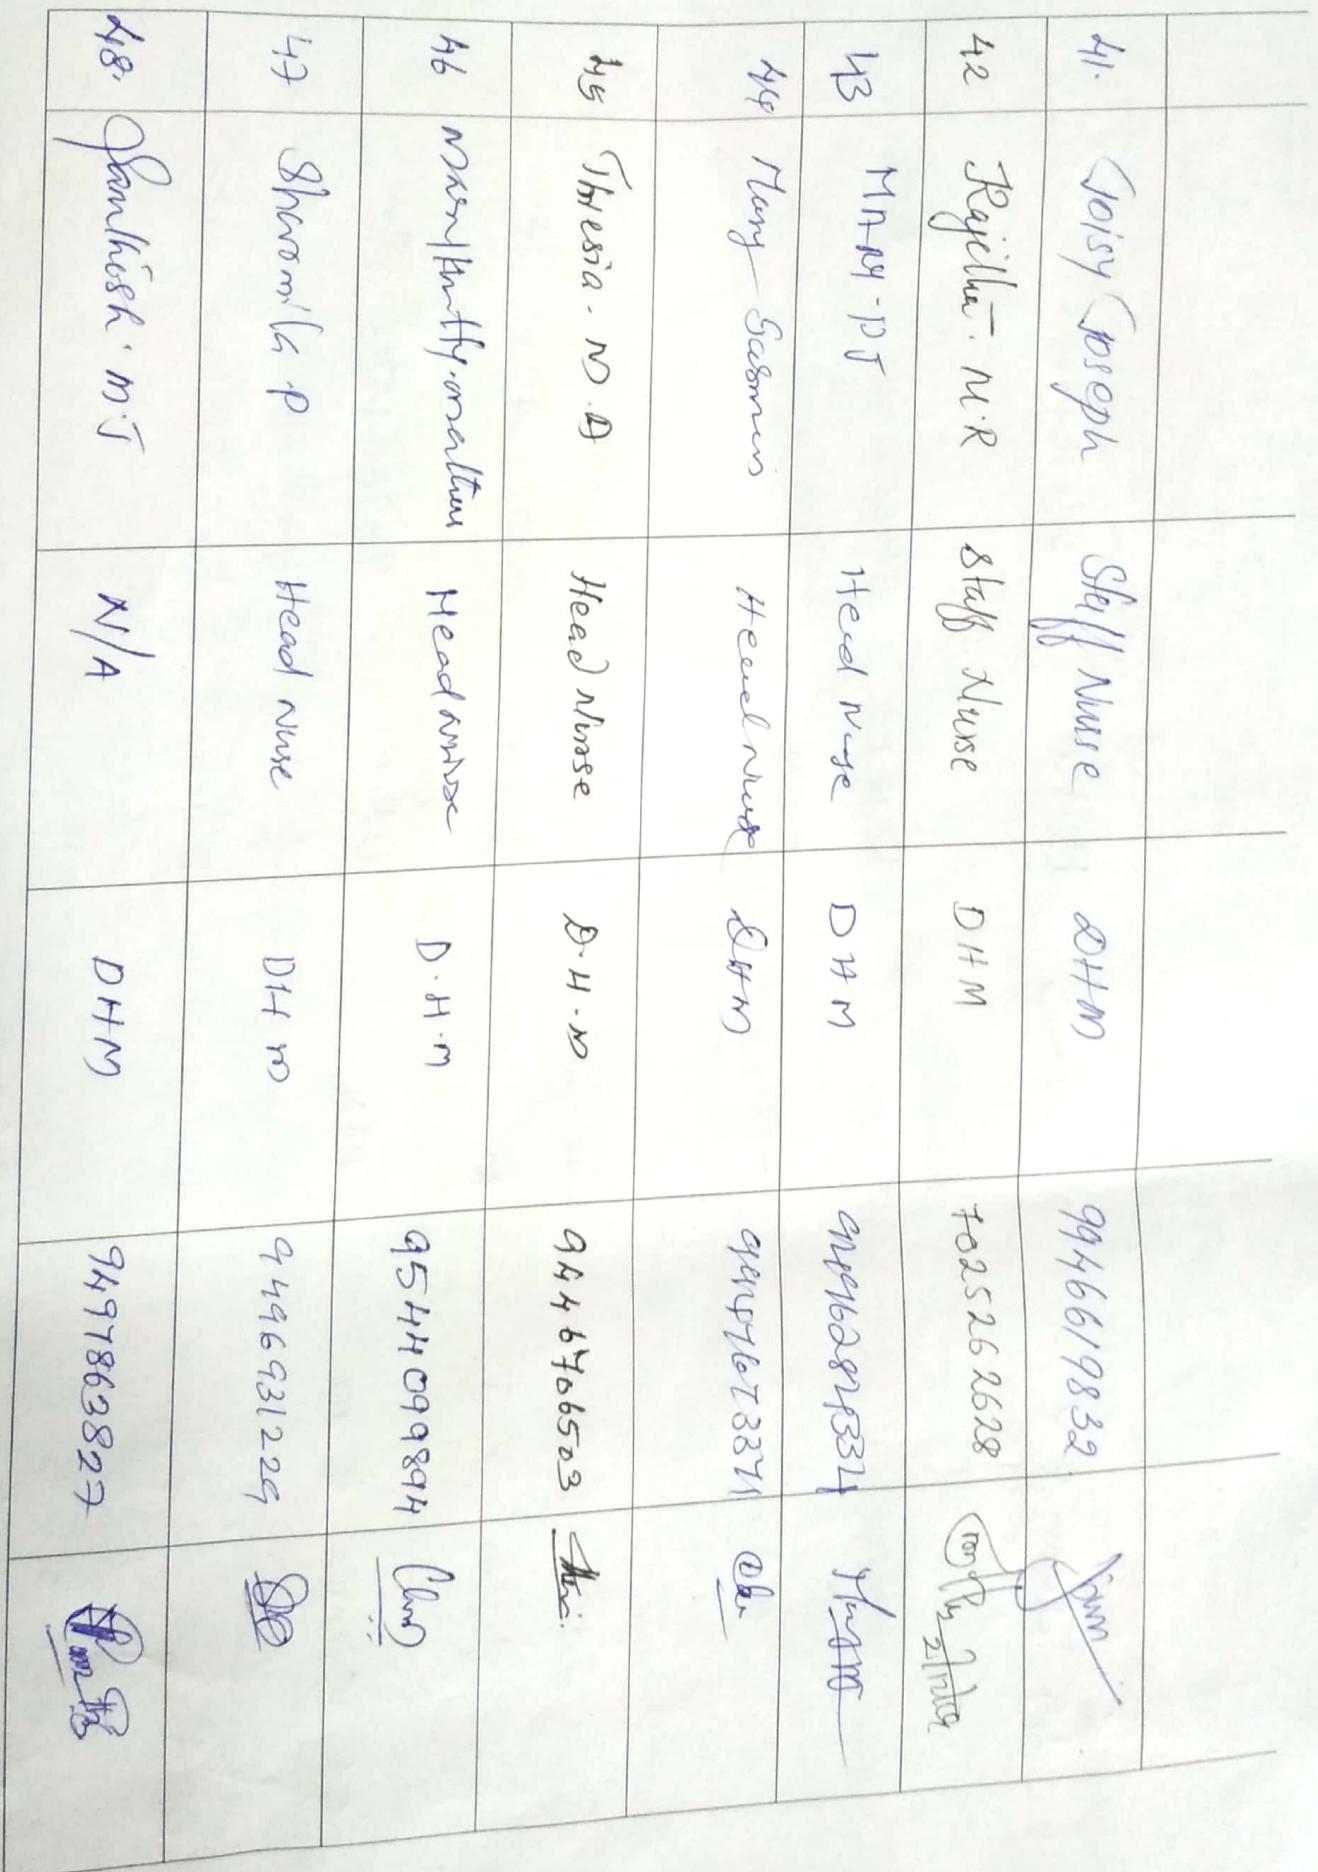 41. Joisy Joseph Staff Nurse DHM 9946619832
42 Rajitha. M.R Staff Nurse DHM 7025262628
43 MARY-PJ Head Nurse DHM
44 Mary Jasmin Head Nurse DHM
45 Thresia. M.A Head Nurse D.H.M 9446706503
46 Head nurse D.H.M 9544099894
47 Sharmila P Head Nurse DHM 9496931229
48. Santhosh. M.J N/A DHM 9497863827